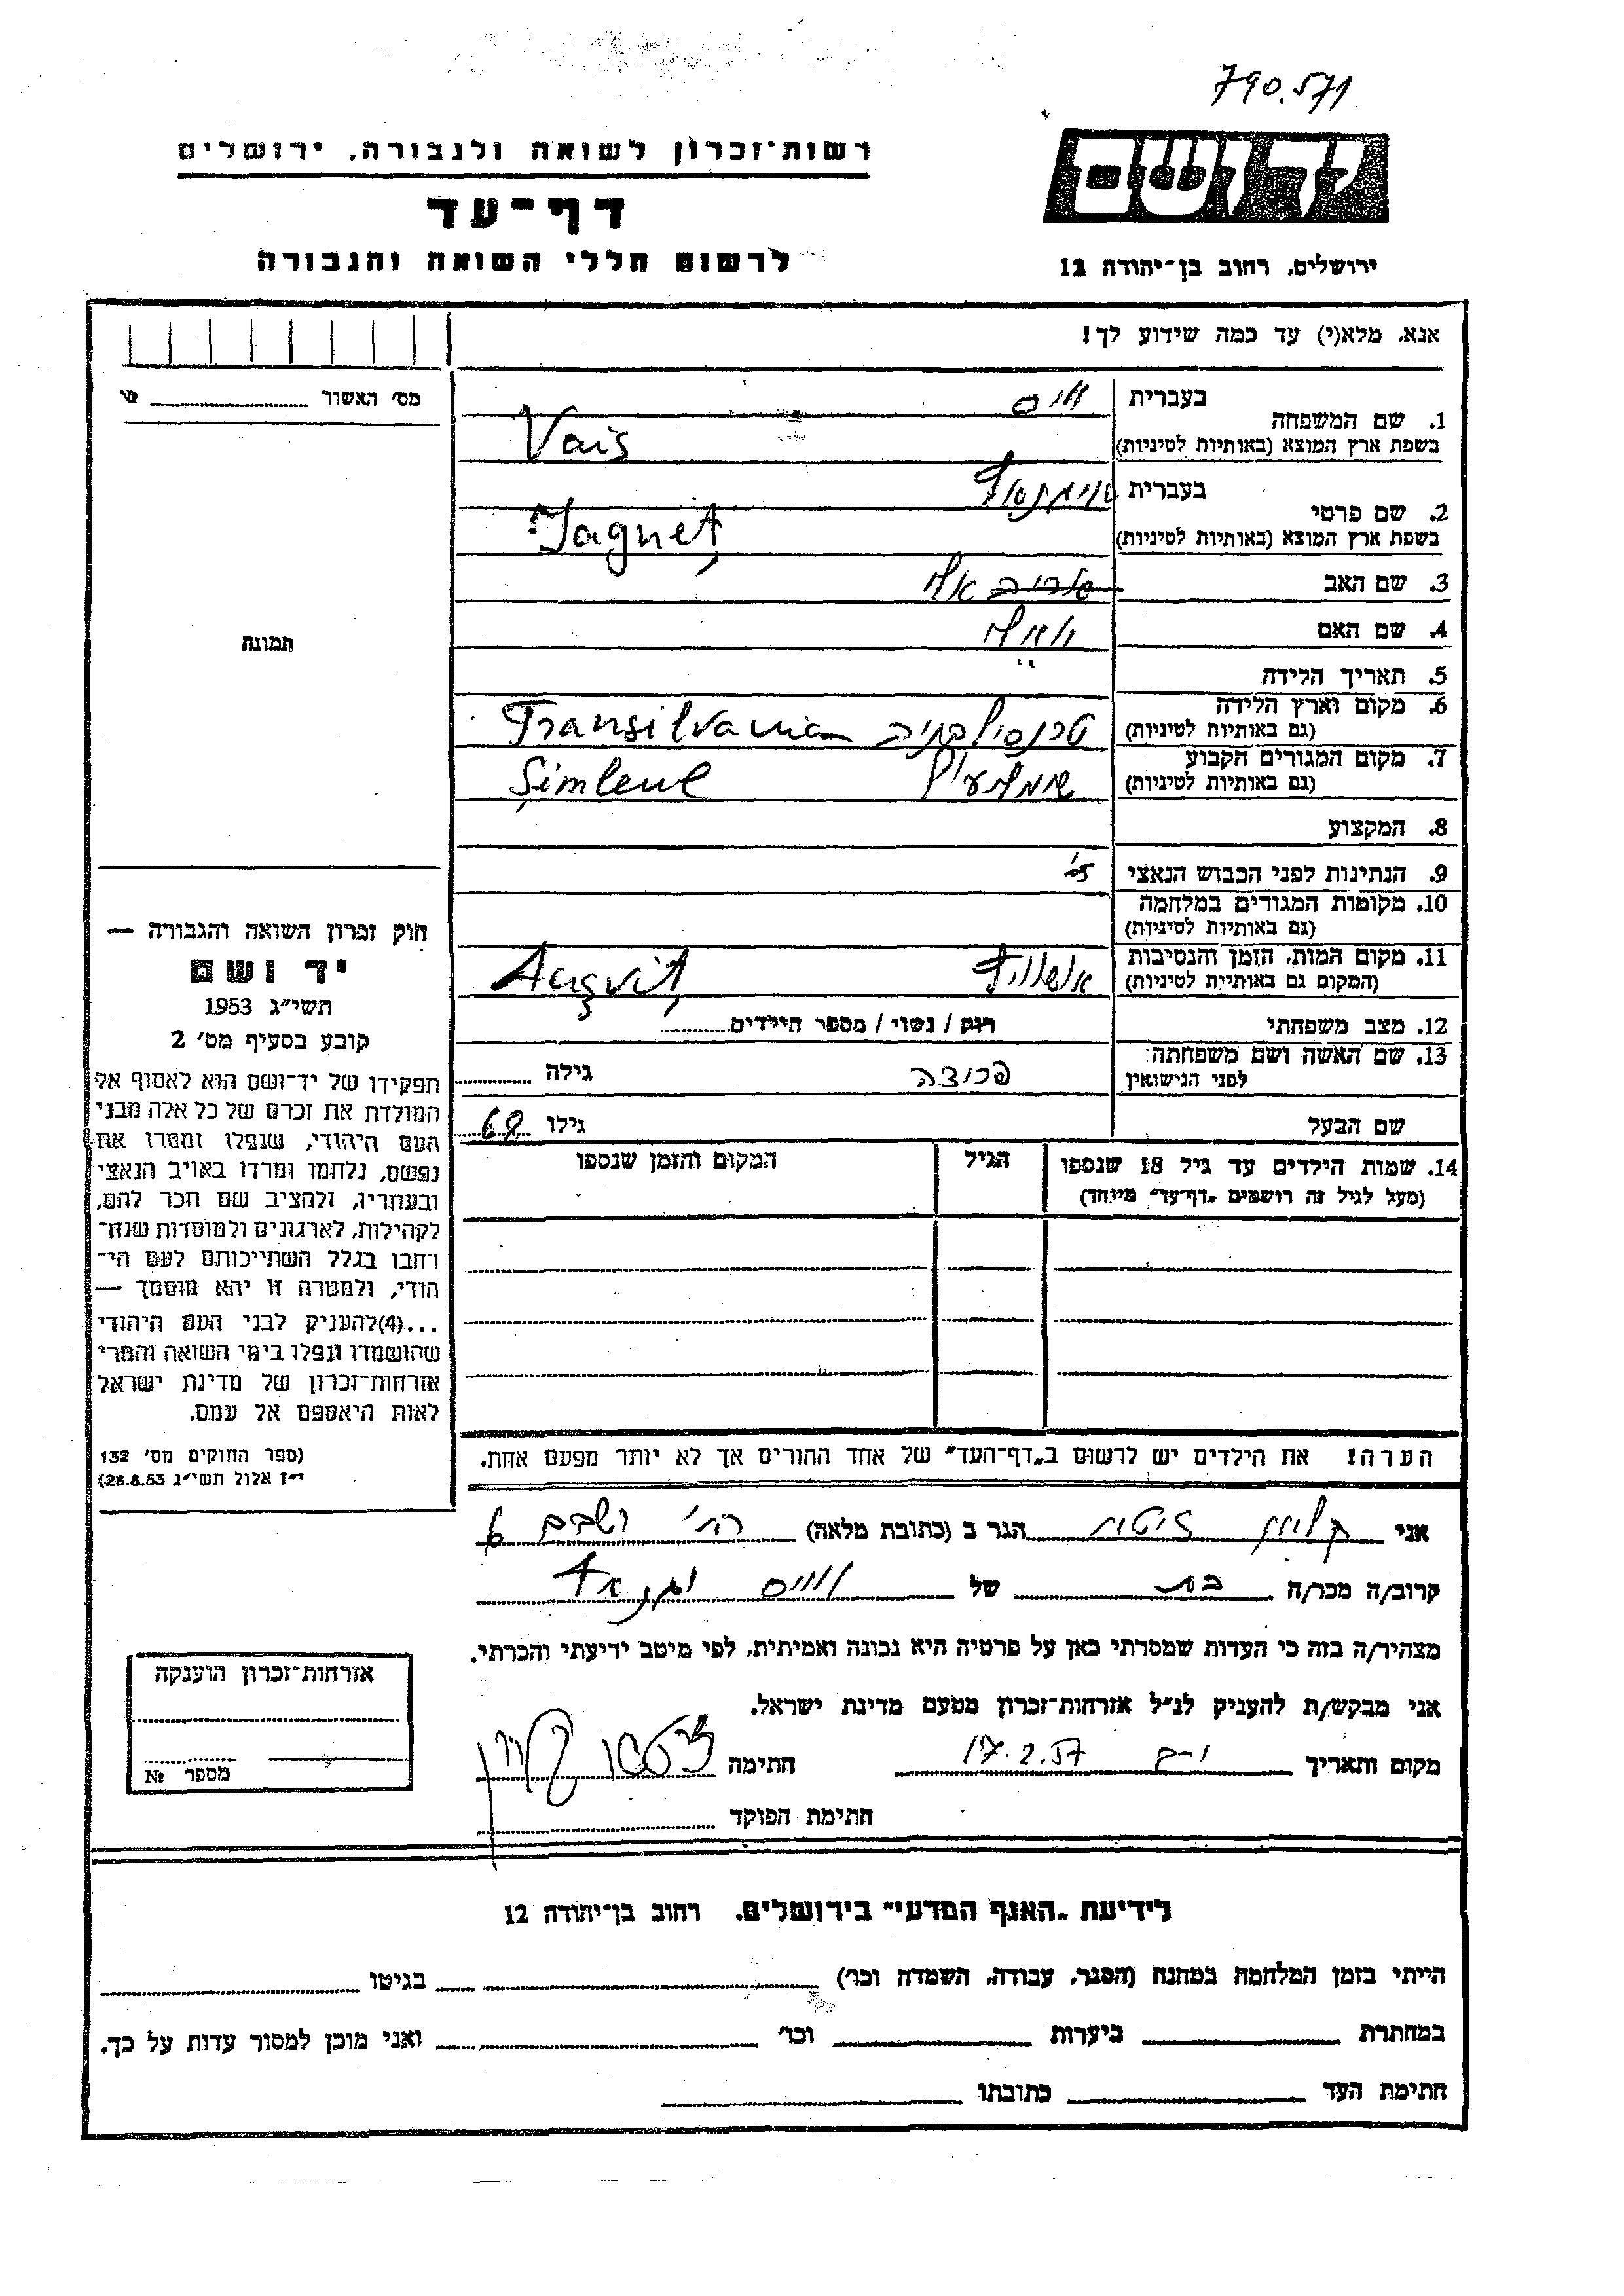 790.571
רשות־זכרון לשואה ולגבורה, ירושלים
דף־עד
לרשום חללי השואה והגבורה
יד ושם
ירושלים, רחוב בן־יהודה 12
אנא, מלא(י) עד כמה שידוע לך!
מס׳ האשור № 
1. שם המשפחה בעברית וייס
בשפת ארץ המוצא (באותיות לטיניות) Vais
2. שם פרטי בעברית
בשפת ארץ המוצא (באותיות לטיניות) Jagneț
3. שם האב
4. שם האם
5. תאריך הלידה
6. מקום וארץ הלידה טרנסילבניה Transilvania
(גם באותיות לטיניות)
7. מקום המגורים הקבוע Șimleul
(גם באותיות לטיניות)
8. המקצוע
9. הנתינות לפני הכבוש הנאצי
10. מקומות המגורים במלחמה
(גם באותיות לטיניות)
11. מקום המות, הזמן והנסיבות אושוויץ Aușviț
(המקום גם באותיות לטיניות)
12. מצב משפחתי רווק / נשוי / מספר הילדים
13. שם האשה ושם משפחתה פרוצה גילה
לפני הנישואין
שם הבעל גילו 68
14. שמות הילדים עד גיל 18 שנספו הגיל המקום והזמן שנספו
(מעל לגיל זה רושמים „דף־עד״ מיוחד)
הערה! את הילדים יש לרשום ב„דף־העד״ של אחד ההורים אך לא יותר מפעם אחת.
תמונה
חוק זכרון השואה והגבורה —
יד ושם
תשי״ג 1953
קובע בסעיף מס׳ 2
תפקידו של יד־ושם הוא לאסוף אל
המולדת את זכרם של כל אלה מבני
העם היהודי, שנפלו ומסרו את
נפשם, נלחמו ומרדו באויב הנאצי
ובעוזריו, ולהציב שם וזכר להם,
לקהילות, לארגונים ולמוסדות שנח־
רבו בגלל השתייכותם לעם הי־
הודי, ולמטרה זו יהא מוסמך —
...(4)להעניק לבני העם היהודי
שהושמדו ונפלו בימי השואה והמרי
אזרחות־זכרון של מדינת ישראל
לאות היאספם אל עמם.
(ספר החוקים מס׳ 132
י״ז אלול תשי״ג 28.8.53)
אני הגר ב (כתובת מלאה) רח׳ 6
קרוב/ה מכר/ה בת של וייס
מצהיר/ה בזה כי העדות שמסרתי כאן על פרטיה היא נכונה ואמיתית, לפי מיטב ידיעתי והכרתי.
אני מבקש/ת להעניק לנ״ל אזרחות־זכרון מטעם מדינת ישראל.
מקום ותאריך 17.2.57 חתימה
חתימת הפוקד
אזרחות־זכרון הוענקה
מספר №
לידיעת „האגף המדעי״ בירושלים, רחוב בן־יהודה 12
הייתי בזמן המלחמה במחנה (הסגר, עבודה, השמדה וכו׳) בגיטו
במחתרת ביערות וכו׳ ואני מוכן למסור עדות על כך.
חתימת העד כתובתו